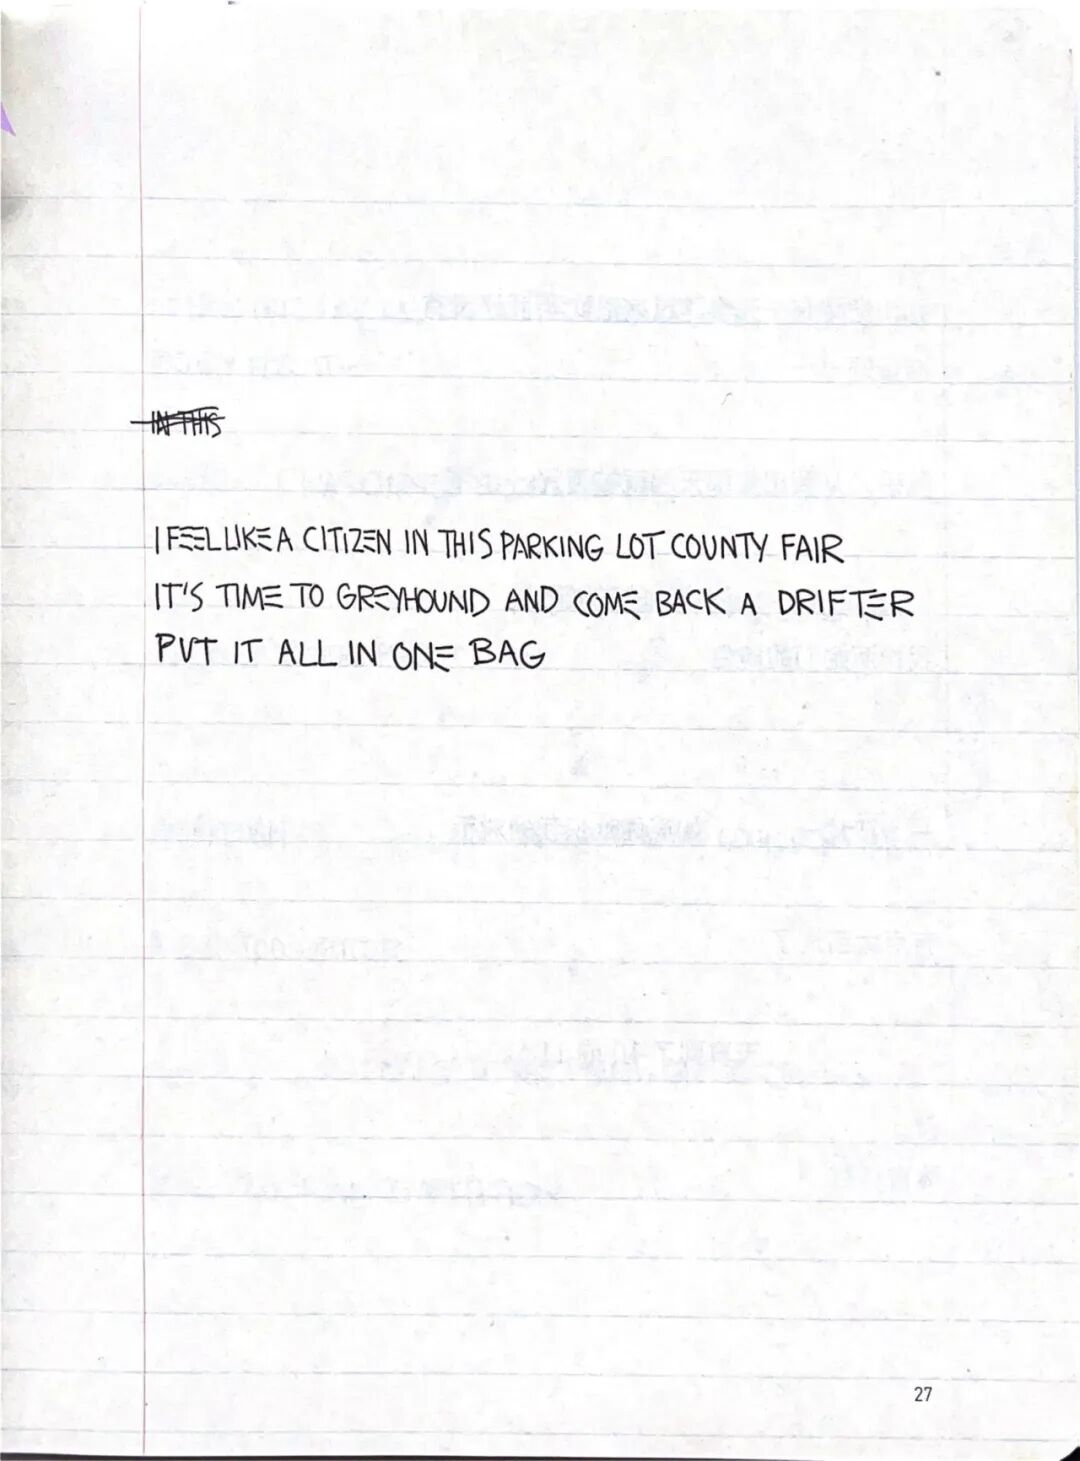 IN THIS
I FEEL LIKE A CITIZEN IN THIS PARKING LOT COUNTY FAIR
IT'S TIME TO GREYHOUND AND COME BACK A DRIFTER
PUT IT ALL IN ONE BAG
27